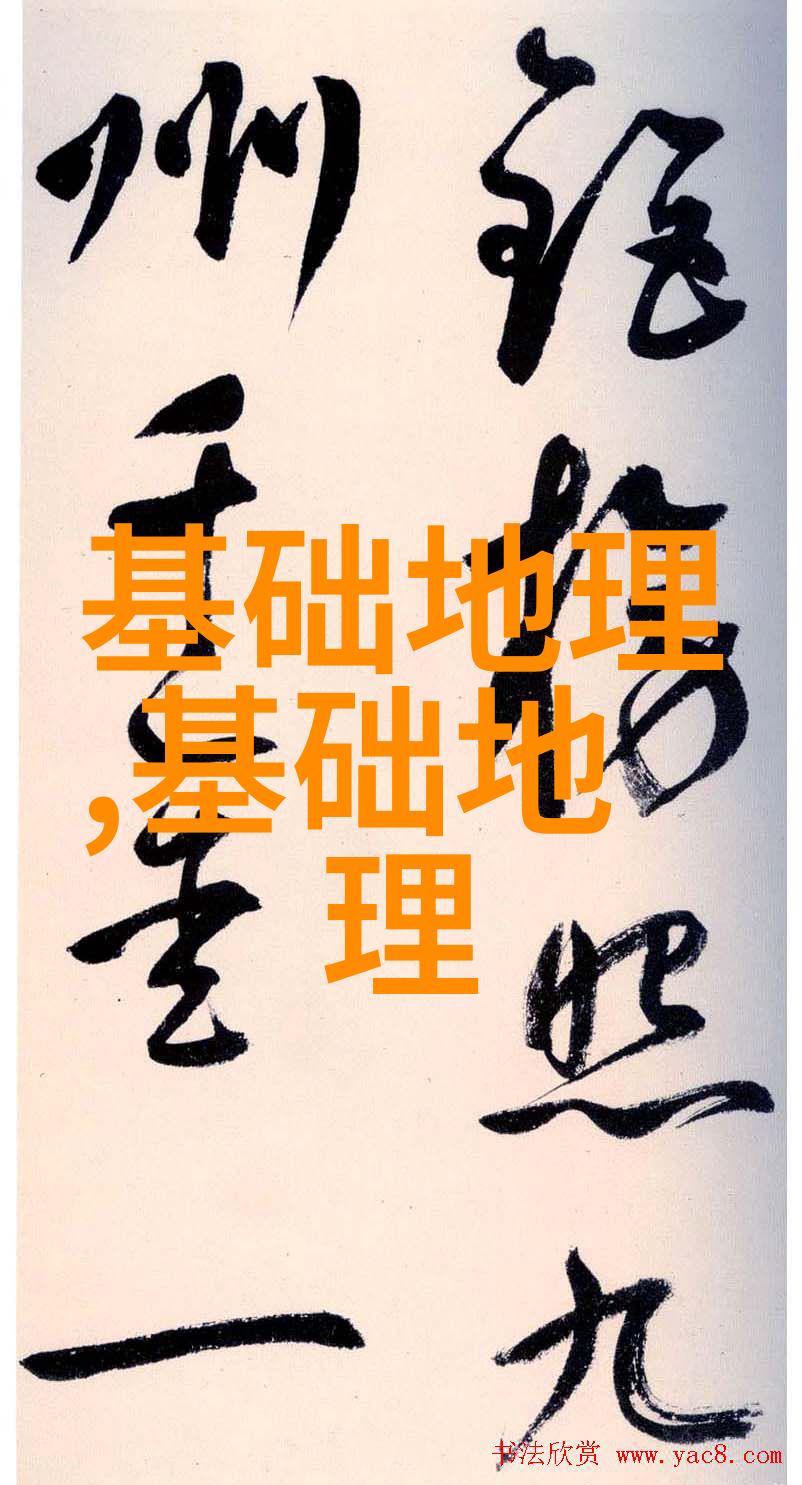 照九
州
一
基础地理
,基础地
理
书法欣赏 www.yac8.com